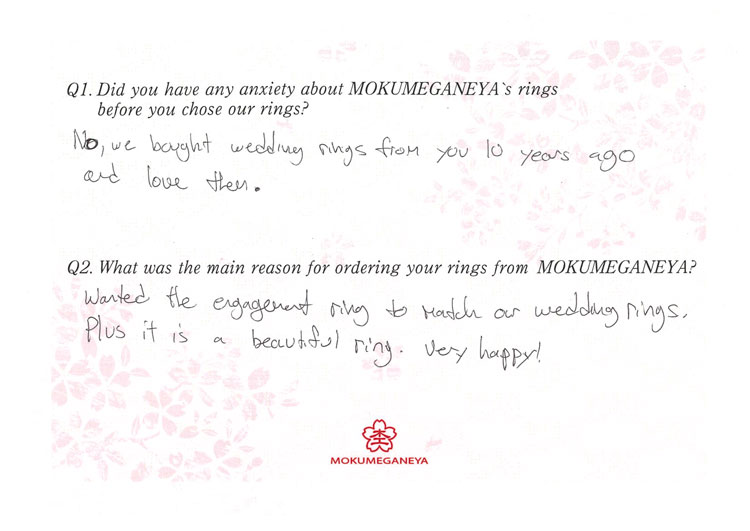 Q1. Did you have any anxiety about MOKUMEGANEYA`s rings
before you chose our rings?
No, we bought wedding rings from you 10 years ago
and love them.
Q2. What was the main reason for ordering your rings from MOKUMEGANEYA?
Wanted the engagement ring to match our wedding rings.
Plus it is a beautiful ring. Very happy!
MOKUMEGANEYA